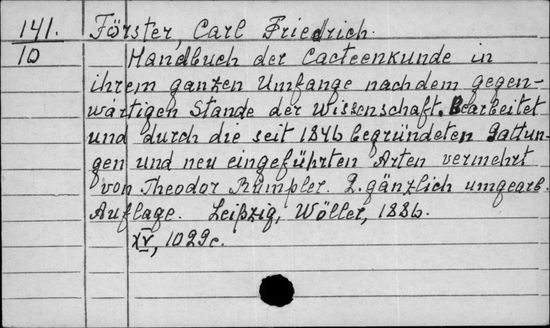 141. Förster, Carl Friedrich.
10 Handbuch der Cacteenkunde in
ihrem ganzen Umfange nach dem gegen-
wärtigen Stande der Wissenschaft. Bearbeitet
und durch die seit 1846 begründeten Gattun-
gen und neu eingeführten Arten vermehrt
von Theodor Rümpler. 2. gänzlich umgearb.
Auflage. Leipzig, Wöller, 1886.
XV, 1029c.